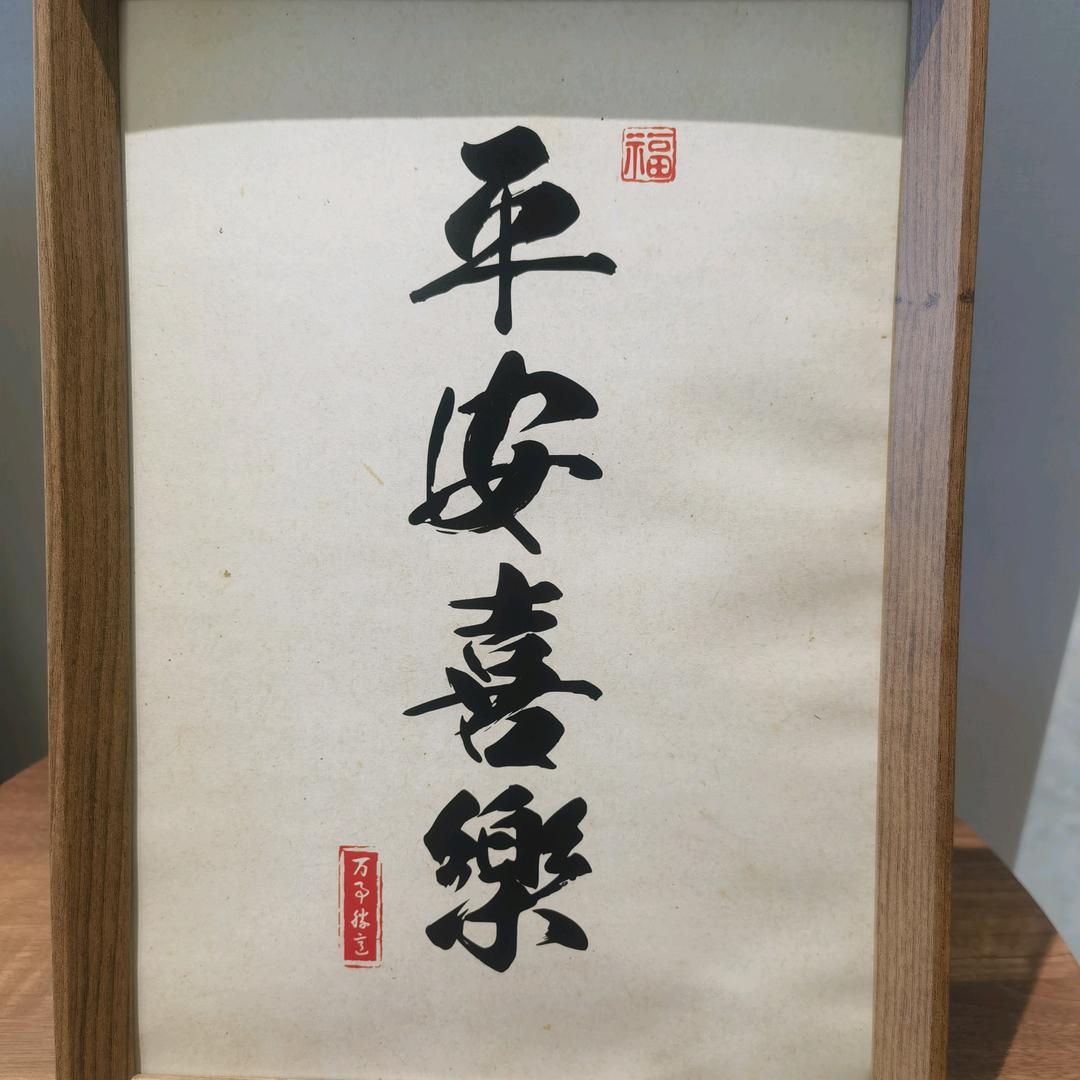 福
平安喜樂
万事勝意